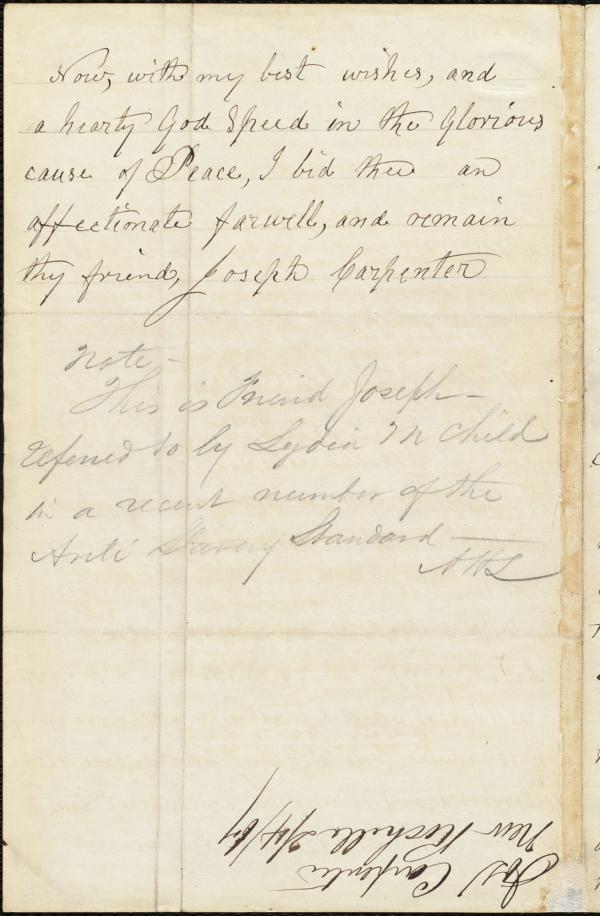 Now, with my best wishes, and
a hearty God Speed in the Glorious
cause of Peace, I bid thee an
affectionate farwell, and remain
thy friend, Joseph Carpenter
Note –
This is Friend Joseph –
refered to by Lydia M Child
in a recent number of the
Anti Slavery Standard –
Jos Carpenter
New Rochelle